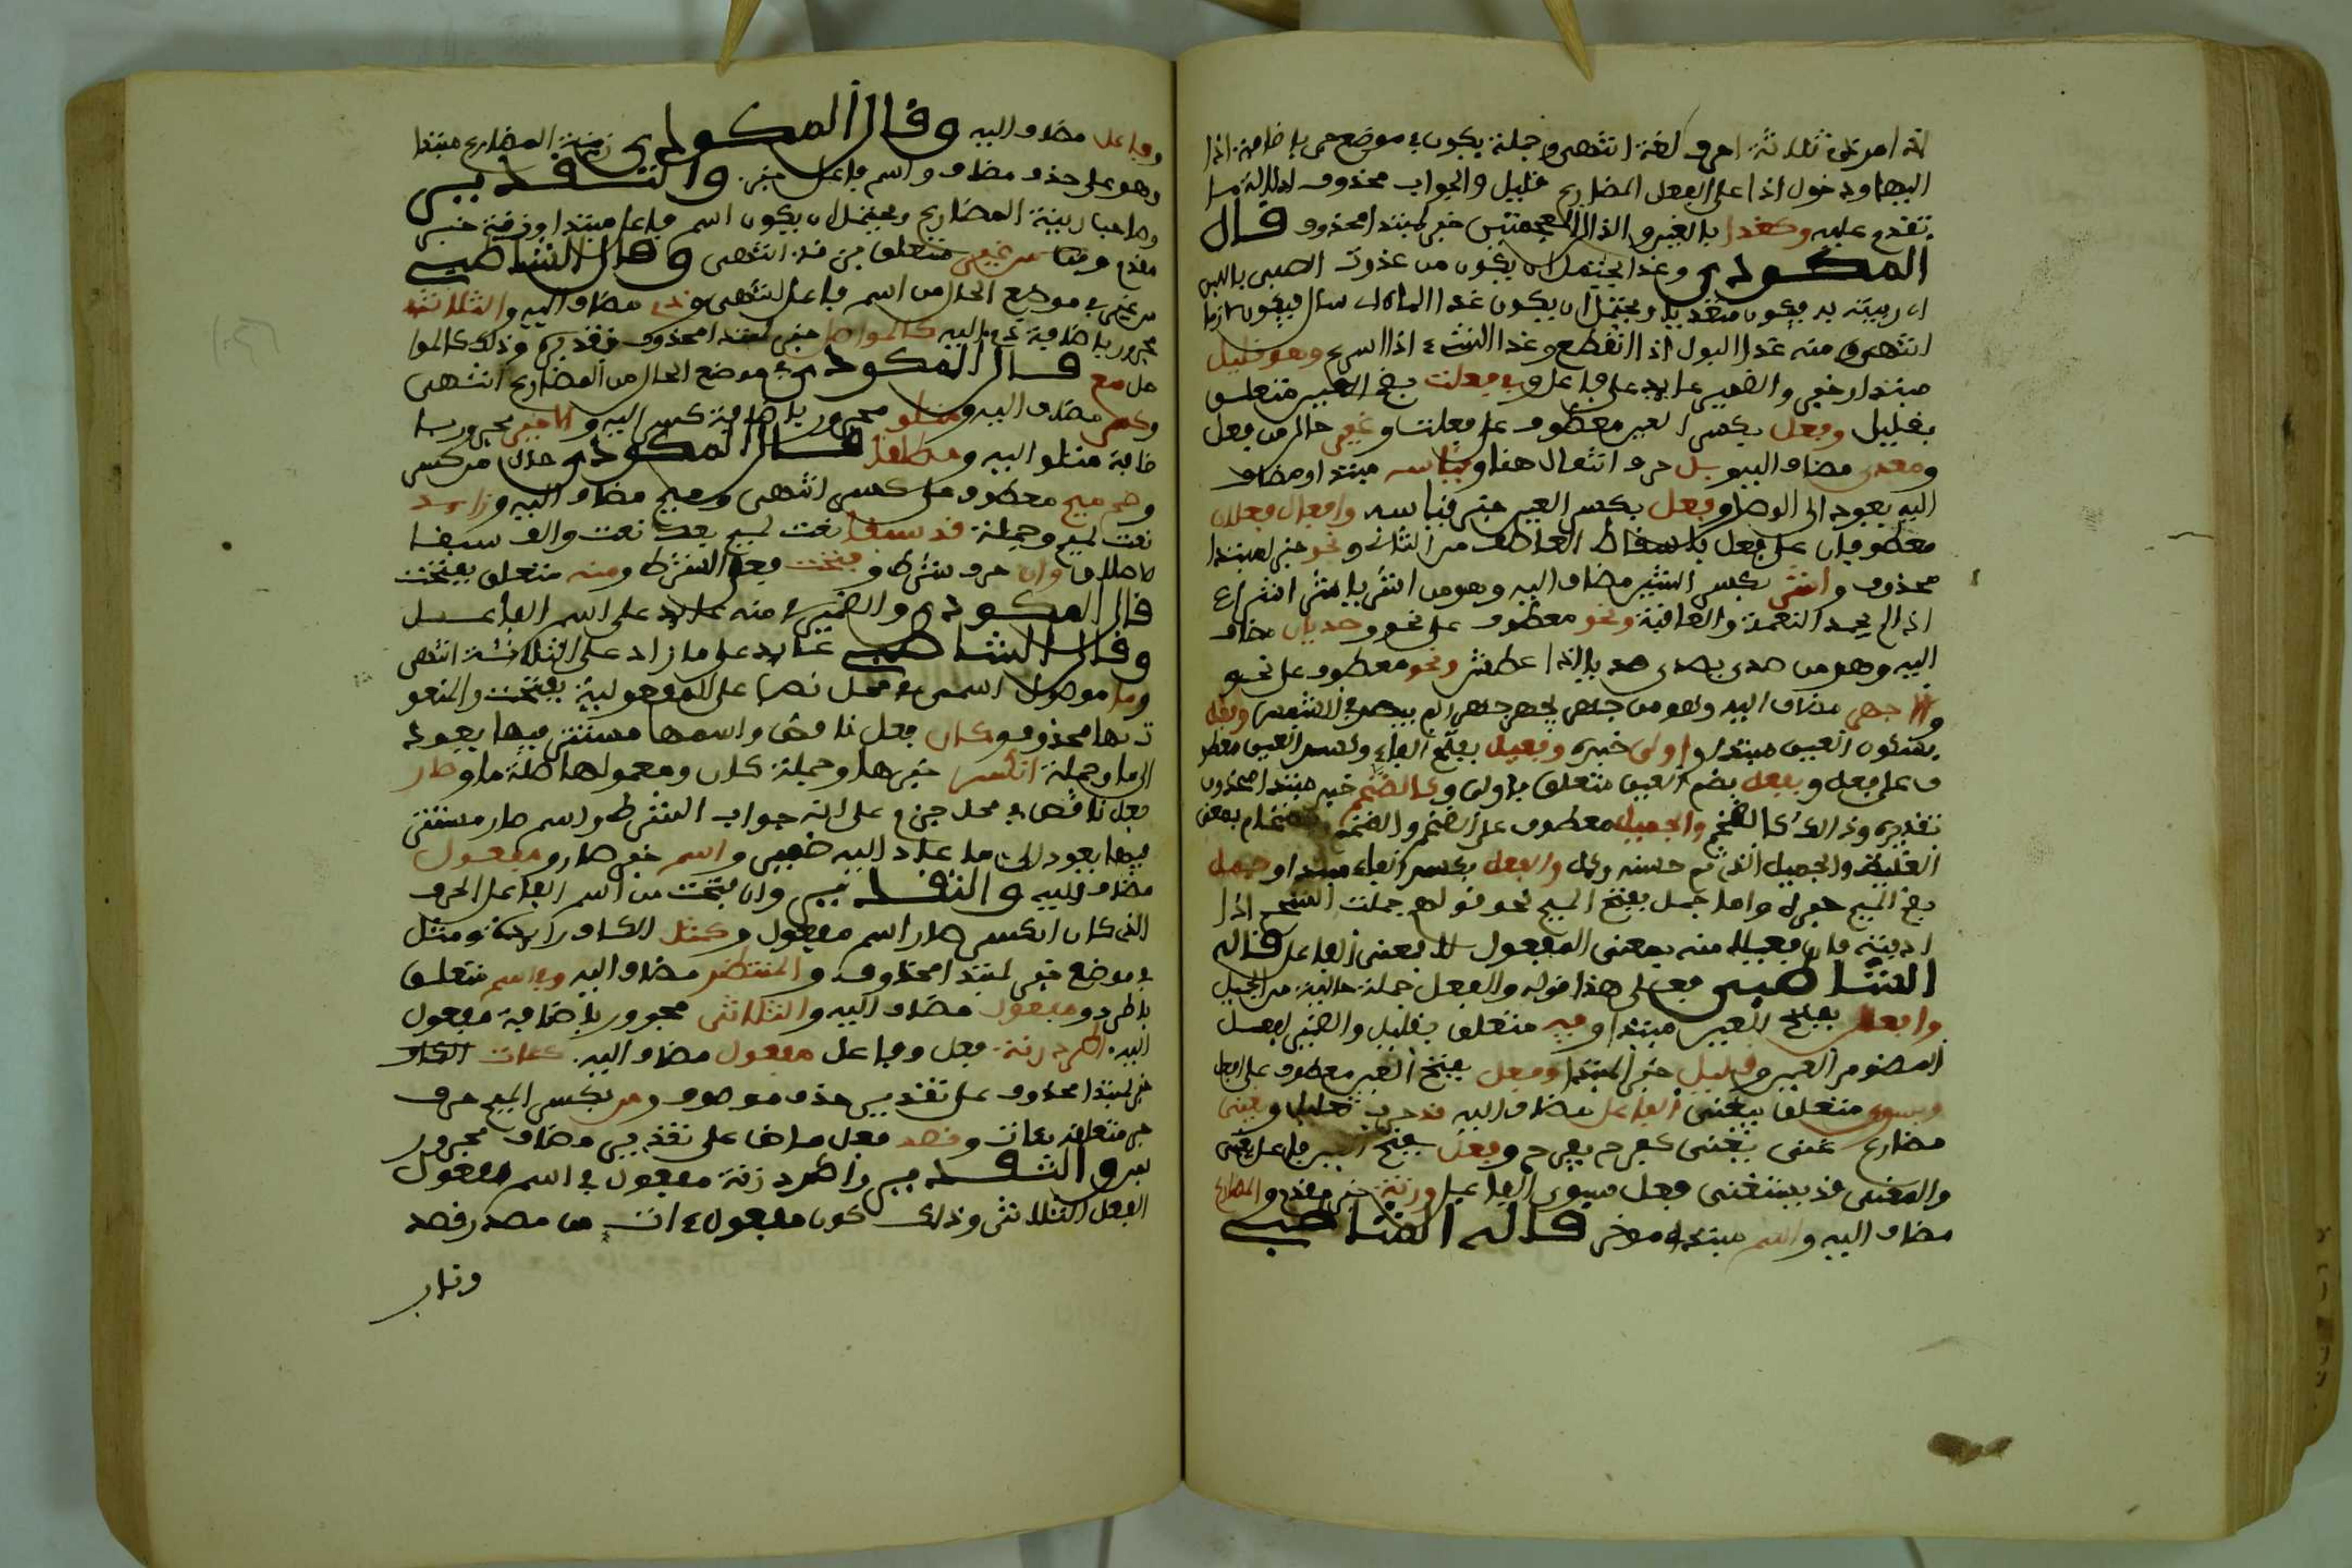 البها ودخول اذا على الفعل المضارع قليل والجواب محذوف لدلالة ما
تقدم عليه وكغذا بالغين والذال المعجمتين خبر لمبتدا محذوف قال
المكودي وغذا يحتمل ان يكون من غذوت الصبى باللبن
اى ربيته به فيكون متعديا ويحتمل ان يكون غذا الماء اى سال فيكون لازما
انتهى ومنه غذا البول اذا انقطع وغذا الشىء اذا اسرع وهو قليل
مبتدا وخبر والضمير عايد على فاعل وفي فعلت بضم العين متعلق
بقليل وفعل بكسر العين معطوف على فعلت وغير حال من فعل
ومعدى مضاف اليه وبل حرف انتقال هنا وقياسه مبتدا ومضاف
اليه يعود الى الوصف وفعل بكسر العين خبر قياسه وافعال فعلان
معطوفان على فعل باسقاط العاطف من الثانى ونحو خبر لمبتدا
محذوف واشر بكسر الشين مضاف اليه وهو من اشر ياشر اشرا
اذا لم يحمد النعمة والعافية ونحو معطوف على نحو وصديان مضاف
اليه وهو من صدى يصدى صديا اذا عطش ونحو معطوف على نحو
والاجهر مضاف اليه وهو من جهر يجهر جهرا لم يبصر في الشمس وفعل
بسكون العين مبتدا واولى خبره وفعيل بفتح الفاء وكسر العين معطو
ف على فعل وبفعل بضم العين متعلق باولى وكالضخم خبر مبتدا محذوف
تقديره وذالك كالضخم والجميل معطوف على الضخم والضخم بمعنى
الغليظ والجميل الذى تم حسنه والفعل بكسر الفاء مبتدا وجمل
بضم الميم خبره واما جمل بفتح الميم نحو قولهم جملت الشحم اذا
اذبته فان فعيلا منه بمعنى المفعول لا بمعنى الفاعل قاله
الشاطبي فعلى هذا قوله والفعل جملة حالية من الجميل
وافعل بفتح العين مبتدا وفيه متعلق بقليل والضمير لفعل
المضموم العين وقليل خبر المبتدا وفعل بفتح العين معطوف على افعل
وبسوى متعلق بيغنى الفاعل مضاف اليه قد حرف تقليل ويغنى
مضارع غنى يغنى كفرح يفرح وفعل بفتح العين فاعل يغنى
والمعنى قد يستغنى فعل بسوى الفاعل وزنة خبر مقدم والمضارع
مضاف اليه واسم مبتدا مؤخر قاله الشاطبي
وفاعل مضاف اليه وقال المكودي زنة المضارع مبتدا
وهو على حذف مضاف واسم فاعل خبره والتقدير
وصاحب زنة المضارع ويحتمل ان يكون اسم فاعل مبتدا وزنة خبر
مقدم من غير متعلق بزنة انتهى وقال الشاطبي
من غير في موضع الحال من اسم فاعل انتهى وذى مضاف اليه والثلاثة
مجرور باضافة ذى اليه كالمواصل خبر لمبتدا محذوف تقديره وذلك كالموا
صل مع قال المكودي في موضع الحال من المضارع انتهى
وكسر مضاف اليه ومتلو مجرور باضافة كسر اليه والاخير مجرور با
ضافة متلو اليه ومطلقا قال المكودي حال من كسر
وضم ميم معطوف على كسر انتهى وميم مضاف اليه وزايد
نعت لميم وجملة قد سبقا نعت لميم بعد نعت والف سبقا
للاطلاق وان حرف شرط وفتحت فعل الشرط ومنه متعلق بفتحت
قال المكودي والضمير في منه عايد على اسم الفاعل
وقال الشاطبي عايد على ما زاد على الثلاثة انتهى
وما موصول اسمى في محل نصب على المفعولية بفتحت والمنعو
ت بها محذوف وكان فعل ناقص واسمها مستتر فيها يعود
الى ما وجملة انكسر خبرها وجملة كان ومعمولها صلة ما وصار
فعل ناقص في محل جزم على انه جواب الشرط واسم صار مستتر
فيها يعود الى ما عاد اليه ضمير واسم خبر صار ومفعول
مضاف اليه والتقدير وان فتحت من اسم الفاعل الحرف
الذى كان انكسر صار اسم مفعول وكمثل الكاف زايدة ومثل
في موضع خبر لمبتدا محذوف والمنتظر مضاف اليه وفي اسم متعلق
باطرد ومفعول مضاف اليه والثلاثى مجرور باضافة مفعول
اليه اطرد زنة فعل وفاعل مفعول مضاف اليه كئات الكاف
خبر لمبتدا محذوف على تقدير حذف موصوف ومن بكسر الميم حرف
جر متعلق بئات وقصد فعل ماضا على تقدير مضاف مجرور
بمن والتقدير واطرد زنة مفعول في اسم مفعول
الفعل الثلاثى وذلك كون مفعول ءات من مصدر قصد